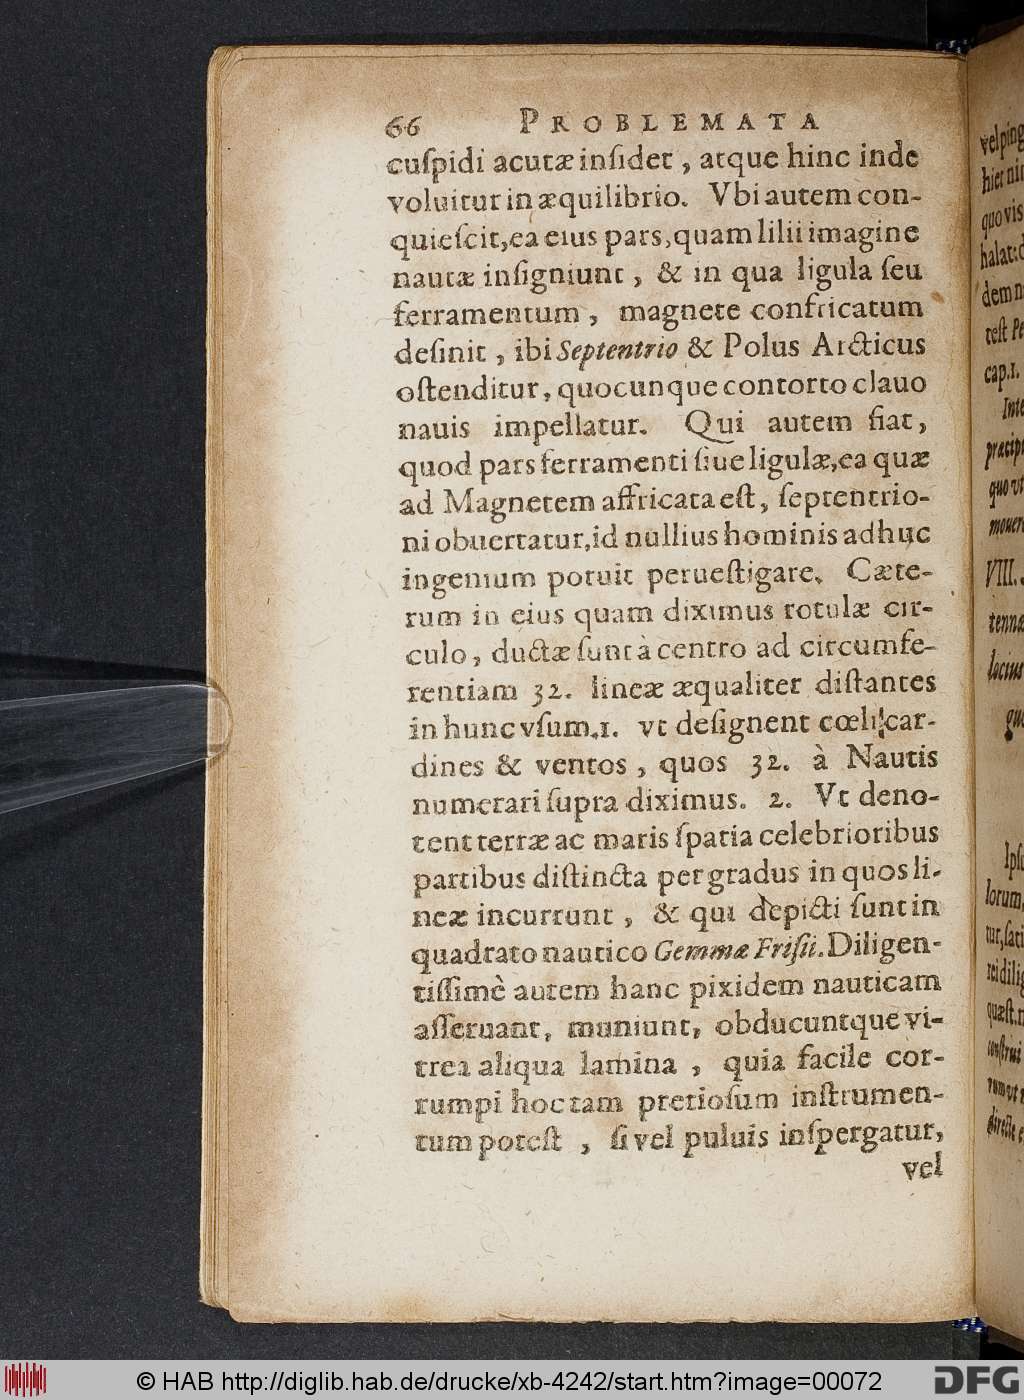 66 PROBLEMATA
cuſpidi acutæ inſidet, atque hinc inde
voluitur in æquilibrio. Vbi autem con-
quieſcit, ea eius pars, quam lilii imagine
nautæ inſigniunt, & in qua ligula ſeu
ferramentum, magnete confricatum
deſinit, ibi Septentrio & Polus Arcticus
oſtenditur, quocunque contorto clauo
nauis impellatur. Qui autem fiat,
quod pars ferramenti ſiue ligulæ, ea quæ
ad Magnetem affricata eſt, ſeptentrio-
ni obuertatur, id nullius hominis adhuc
ingenium potuit perueſtigare. Cæte-
rum in eius quam diximus rotulæ cir-
culo, ductæ ſunt à centro ad circumfe-
rentiam 32. lineæ æqualiter diſtantes
in hunc vſum. 1. vt deſignent cœli car-
dines & ventos, quos 32. à Nautis
numerari ſupra diximus. 2. Vt deno-
tent terræ ac maris ſpatia celebrioribus
partibus diſtincta per gradus in quos li-
neæ incurrunt, & qui depicti ſunt in
quadrato nautico Gemmæ Friſii. Diligen-
tiſſimè autem hanc pixidem nauticam
aſſeruant, muniunt, obducuntque vi-
trea aliqua lamina, quia facile cor-
rumpi hoc tam pretioſum inſtrumen-
tum poteſt, ſi vel puluis inſpergatur,
vel
velping
hier
quo vis
halat:
dem
teſt
cap. 1.
præcip
quo vt
VIII.
tennæ
locius
lorum,
© HAB http://diglib.hab.de/drucke/xb-4242/start.htm?image=00072
DFG